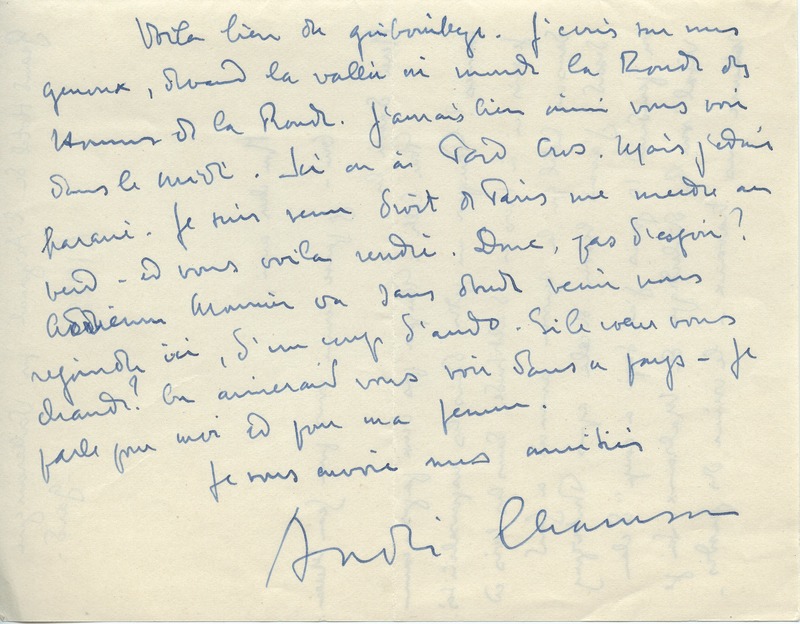 Voila bien du guibouibege. J'ecris sur mes
genoux, devant la vallée où monte la Ronde des
Hommes de la Route. J'aurais bien aimé vous voir
dans le midi. Ici ou à Port Cros. Mais j'étais
harassé. Je suis venu droit de Paris me mettre au
vert - et vous voila rentré. Donc, pas d'espoir?
Adrienne Monnier va sans doute venir nous
rejoindre ici, d'un coup d'auto. Si le cœur vous
chante? On aimerait vous voir dans ce pays - Je
parle pour moi et pour ma femme.
Je vous envoie mes amitiés
André Chamson